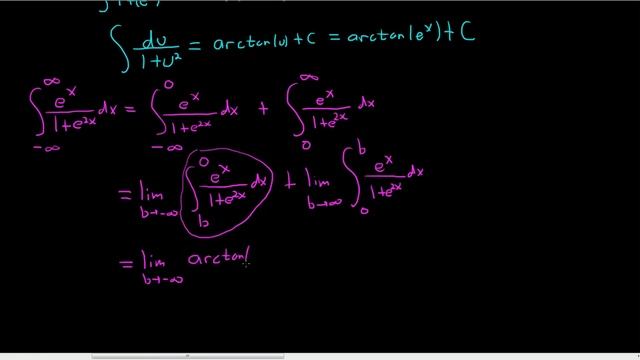 ∫ du/(1+u²) = arctan(u) + C = arctan(e^x) + C
∫_{-∞}^{∞} e^x/(1+e^{2x}) dx = ∫_{-∞}^{0} e^x/(1+e^{2x}) dx + ∫_{0}^{∞} e^x/(1+e^{2x}) dx
= lim_{b→-∞} ∫_{b}^{0} e^x/(1+e^{2x}) dx + lim_{b→∞} ∫_{0}^{b} e^x/(1+e^{2x}) dx
= lim_{b→-∞} arctan(